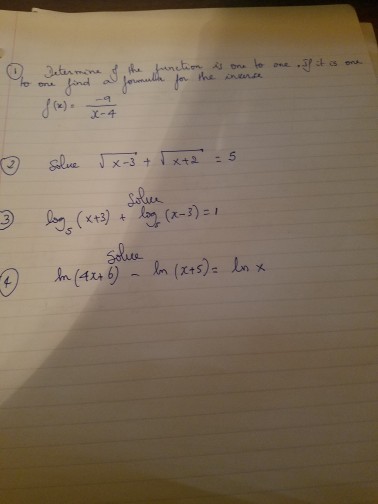 ① Determine if the function is one to one. If it is one
to one find a formula for the inverse
f(x) = -9/(x-4)
② Solve √(x-3) + √(x+2) = 5
Solve
③ log₅ (x+3) + log₅ (x-3) = 1
Solve
④ ln(4x+6) - ln(x+5) = ln x